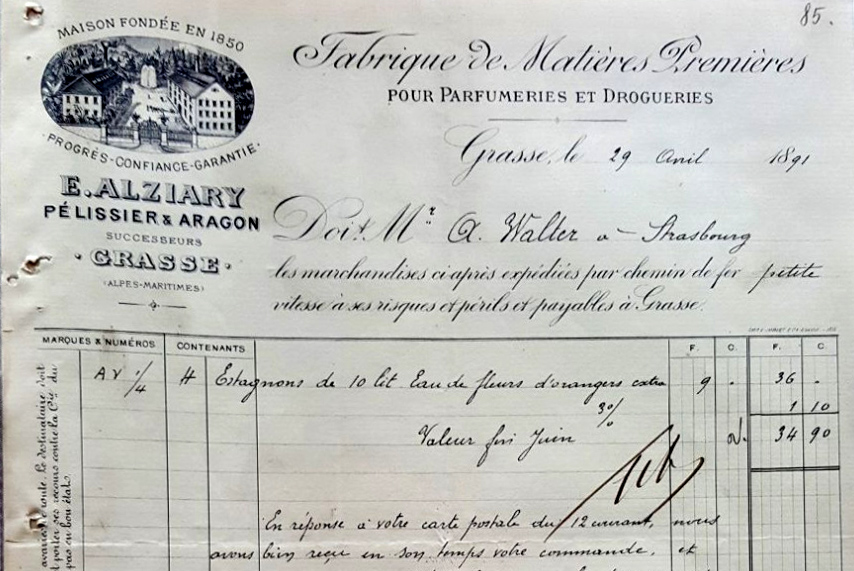 85.
MAISON FONDÉE EN 1850
PROGRÈS-CONFIANCE-GARANTIE
E. ALZIARY
PÉLISSIER & ARAGON
SUCCESSEURS
GRASSE
(ALPES-MARITIMES)
Fabrique de Matières Premières
POUR PARFUMERIES ET DROGUERIES
Grasse, le 29 Avril 1891
Doit Mr. A. Walter à Strasbourg
les marchandises ci-après expédiées par chemin de fer petite
vitesse à ses risques et périls et payables à Grasse.
MARQUES & NUMÉROS CONTENANTS F. C. F. C.
1/4 4 Estagnons de 10 lit. Eau de fleurs d'orangers extra 9 . 36 .
3% 1 10
Valeur fin Juin 34 90
En réponse à votre carte postale du 12 courant, nous
avons bien reçu en son temps votre commande, et
route. Le destinataire doit
porter ses recours contre la Cie du
pas en bon état.